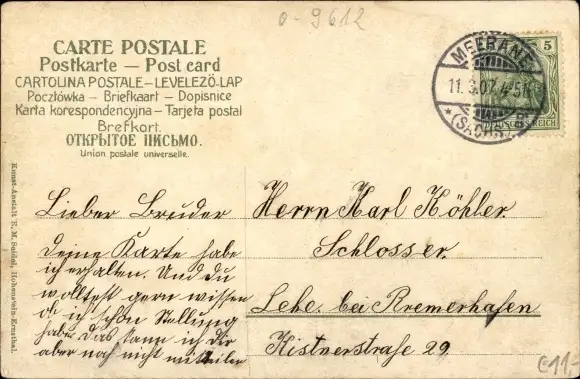 0-9612
CARTE POSTALE
Postkarte — Post card
CARTOLINA POSTALE – LEVELEZÖ-LAP
Pocztówka – Briefkaart – Dopisnice
Karta korespondencyjna – Tarjeta postal
Brefkort.
ОТКРЫТОЕ ПИСЬМО.
Union postale universelle.
MEERANE
11.3.07. 4-5N.
(SACHS.)
5
DEUTSCHES REICH
Kunst-Anstalt E. M. Seidel, Hohenstein-Ernstthal.
Lieber Bruder
deine Karte habe
ich erhalten. Und du
wolltest gern wissen
ob ich schon Stellung
habe das kann ich dir
aber noch nicht mitteilen
Herrn Karl Köhler.
Schlosser.
Lehe. bei Bremerhafen
Kistnerstraße 29.
C11,-